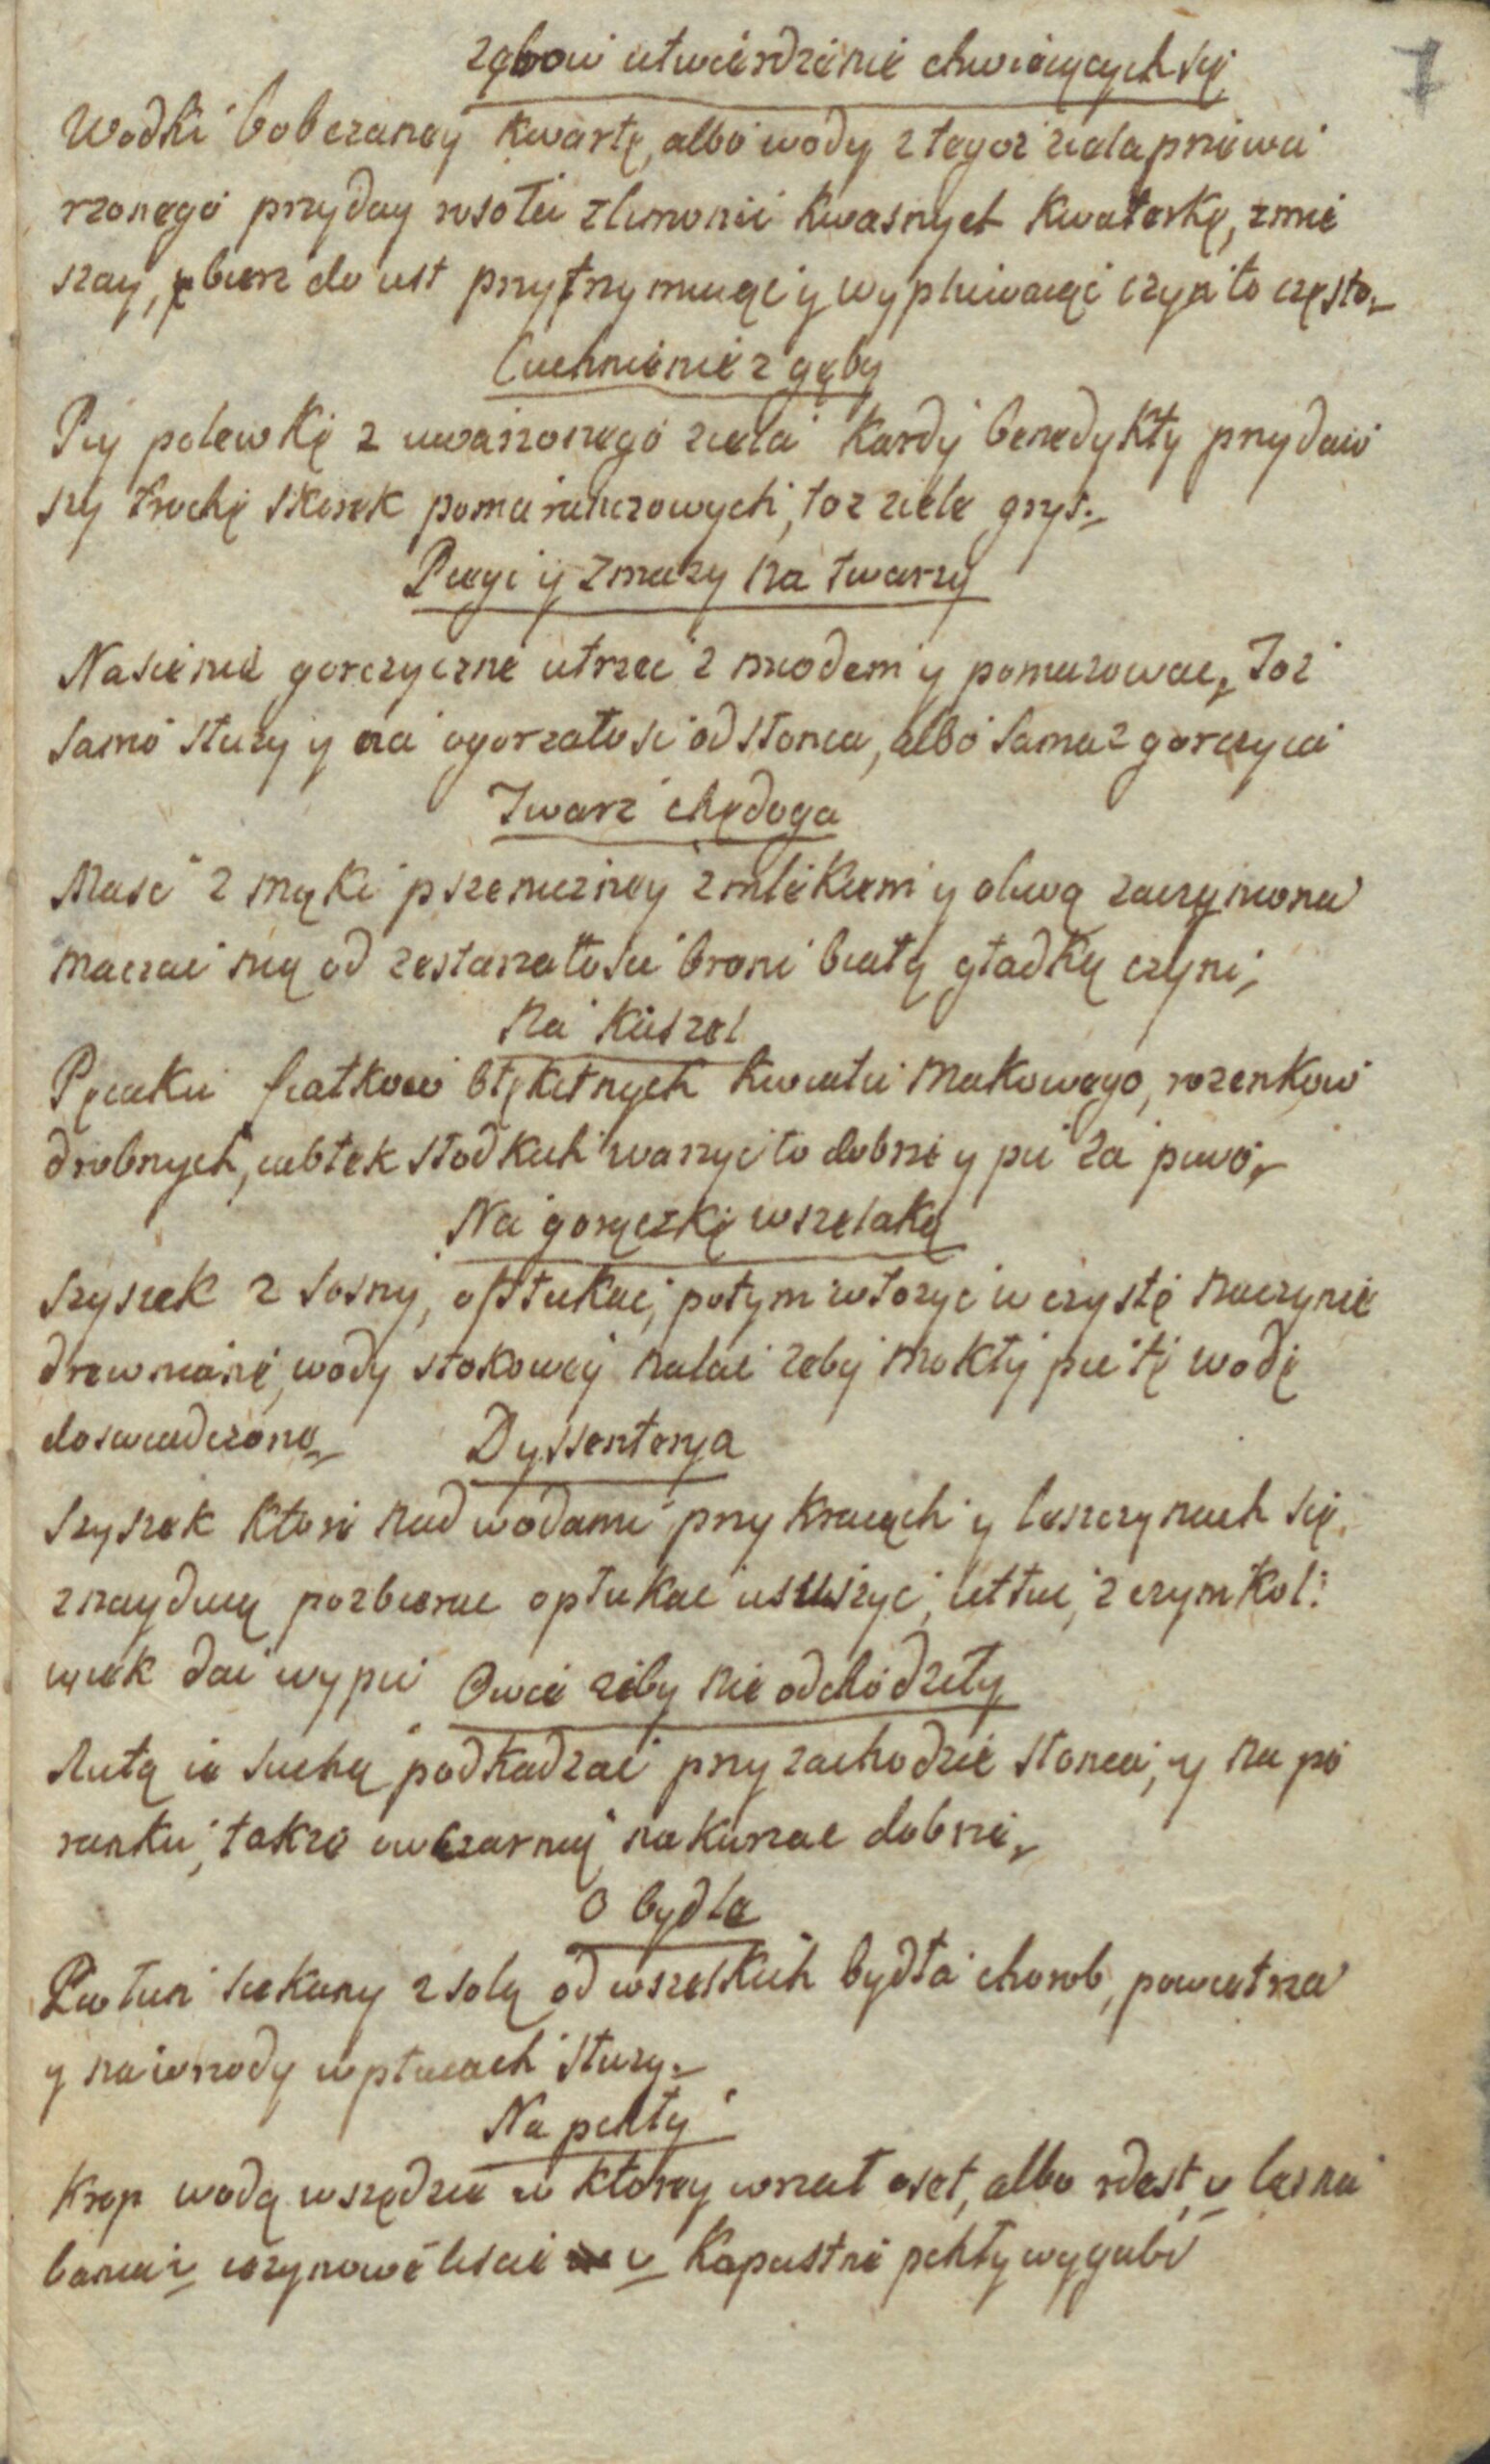 7
ząbow utwierdzenie chwieiących się
Wodki bobczaney kwartę, albo wody z tegoż ziela przewa
rzonego przyday rosołu z limonii kwasnych kwaterkę, zmie
szay, y bierz do ust przytrzymuiąc y wypluwaiąc czyn to często
Cuchnienie z gęby
Piy polewkę z uwarzonego ziela kardy benedykty przydaw
szy trochę skorek pomaranczowych, toz ziele gryś
Piegi y zmazy na twarzy
Nasienie gorczyczne utrzec z miodem y pomazowac, Toż
samo służy y na ogorzałosc od słonca, albo sama gorczyca
Twarz chędoga
Masc z mąki pszeniczney z mlekiem y oliwą zaczyniona
maczac nią od zestarzałosci broni białą gładką czyni,
Na kaszel
Pęcaku fiatkow błękitnych kwiatu makowego, rozenkow
drobnych, iabłek słodkich warzyc to dobrze y pic za piwo
Na gorączkę wszelaką
Szyszek z sosny, opłukac, potym włozyc w czyste naczynie
drewniane, wody stokowey nalac zeby mokły pic tę wodę
doswiadczono
Dyssenterya
Szyszek ktore nad wodami przy krzach y leszczynach się
znayduią pozbierac opłukac ususzyc, utłuc, z czym kol:
wiek dac wypic
Owce zeby nie odchodzeły
Rutą ie suchą podkadzac przy zachodzie słonca, y na po
ranku, takze owczarnią nakurzac dobrze
O bydle
Piołun siekany z solą od wszelkich bydła chorob, powietrza
y na wrzody w płucach służy
Na pchły
Krop wodą wszędzie w ktorey wrzał oset, albo rdest, v lesna
bania v czynowe liscie v Kapustne pchły wygubi